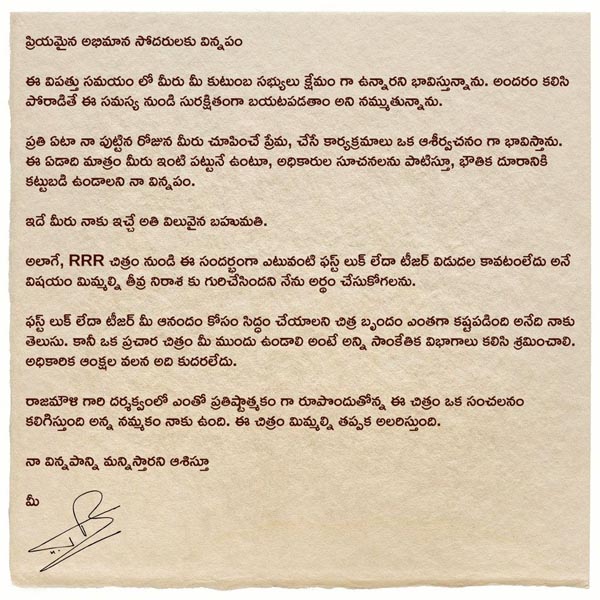 ప్రియమైన అభిమాన సోదరులకు విన్నపం
ఈ విపత్తు సమయం లో మీరు మీ కుటుంబ సభ్యులు క్షేమం గా ఉన్నారని భావిస్తున్నాను. అందరం కలిసి
పోరాడితే ఈ సమస్య నుండి సురక్షితంగా బయటపడతాం అని నమ్ముతున్నాను.
ప్రతి ఏటా నా పుట్టిన రోజున మీరు చూపించే ప్రేమ, చేసే కార్యక్రమాలు ఒక ఆశీర్వచనం గా భావిస్తాను.
ఈ ఏడాది మాత్రం మీరు ఇంటి పట్టునే ఉంటూ, అధికారుల సూచనలను పాటిస్తూ, భౌతిక దూరానికి
కట్టుబడి ఉండాలని నా విన్నపం.
ఇదే మీరు నాకు ఇచ్చే అతి విలువైన బహుమతి.
అలాగే, RRR చిత్రం నుండి ఈ సందర్భంగా ఎటువంటి ఫస్ట్ లుక్ లేదా టీజర్ విడుదల కావటంలేదు అనే
విషయం మిమ్మల్ని తీవ్ర నిరాశ కు గురిచేసిందని నేను అర్థం చేసుకోగలను.
ఫస్ట్ లుక్ లేదా టీజర్ మీ ఆనందం కోసం సిద్ధం చేయాలని చిత్ర బృందం ఎంతగా కష్టపడింది అనేది నాకు
తెలుసు. కానీ ఒక ప్రచార చిత్రం మీ ముందు ఉండాలి అంటే అన్ని సాంకేతిక విభాగాలు కలిసి శ్రమించాలి.
అధికారిక ఆంక్షల వలన అది కుదరలేదు.
రాజమౌళి గారి దర్శకత్వంలో ఎంతో ప్రతిష్టాత్మకం గా రూపొందుతోన్న ఈ చిత్రం ఒక సంచలనం
కలిగిస్తుంది అన్న నమ్మకం నాకు ఉంది. ఈ చిత్రం మిమ్మల్ని తప్పక అలరిస్తుంది.
నా విన్నపాన్ని మన్నిస్తారని ఆశిస్తూ
మీ